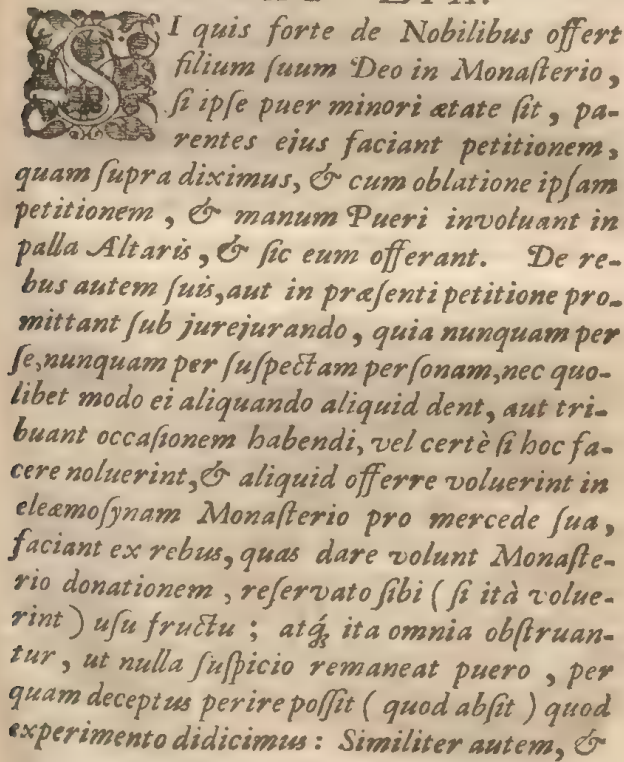 SI quis forte de Nobilibus offert
filium ſuum Deo in Monaſterio,
ſi ipſe puer minori ætate ſit, pa-
rentes ejus faciant petitionem,
quam ſupra diximus, & cum oblatione ipſam
petitionem, & manum Pueri involuant in
palla Altaris, & ſic eum offerant. De re-
bus autem ſuis, aut in præſenti petitione pro-
mittant ſub jurejurando, quia nunquam per
ſe, nunquam per ſuſpectam perſonam, nec quo-
libet modo ei aliquando aliquid dent, aut tri-
buant occaſionem habendi, vel certè ſi hoc fa-
cere noluerint, & aliquid offerre voluerint in
eleæmoſynam Monaſterio pro mercede ſua,
faciant ex rebus, quas dare volunt Monaſte-
rio donationem, reſervato ſibi (ſi ità volue-
rint) uſu fructu; atq́; ita omnia obſtruan-
tur, ut nulla ſuſpicio remaneat puero, per
quam deceptus perire poſſit (quod abſit) quod
experimento didicimus: Similiter autem, &